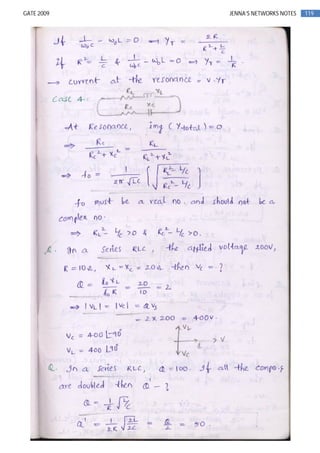 GATE 2009
JENNA'S NETWORKS NOTES 119
If 1/ω₀C - ω₀L = 0 → Yr = 2R / (R² + L/C)
If R² = L/C & 1/ω₀C - ω₀L = 0 → Yr = 1/R
→ current at the resonance = V.Yr
Case 4:
RL XL
Rc Xc
At Resonance, img (Ytotal) = 0
⇒ Rc / (Rc² + Xc²) = RL / (RL² + XL²)
⇒ fo = 1 / (2π √LC) { √(RL² - L/C) / (Rc² - L/C) }
fo must be a real no. and should not be a
complex no.
⇒ RL² - L/C > 0 & Rc² - L/C > 0.
Q. In a series RLC, the applied voltage 200V,
R = 10Ω, XL = Xc = 20Ω then Vc = ?
Q = I₀XL / I₀R = 20/10 = 2
⇒ |VL| = |Vc| = QVs
= 2 x 200 = 400V.
Vc = 400 ∟-90°
VL = 400 ∟90°
VL
V
I
Vc
Q. In a series RLC, Q = 100. If all the compo.s
are doubled then Q' = ?
Q = 1/R √L/C
Q' = 1/2R √2L/2C = Q/2 = 50.